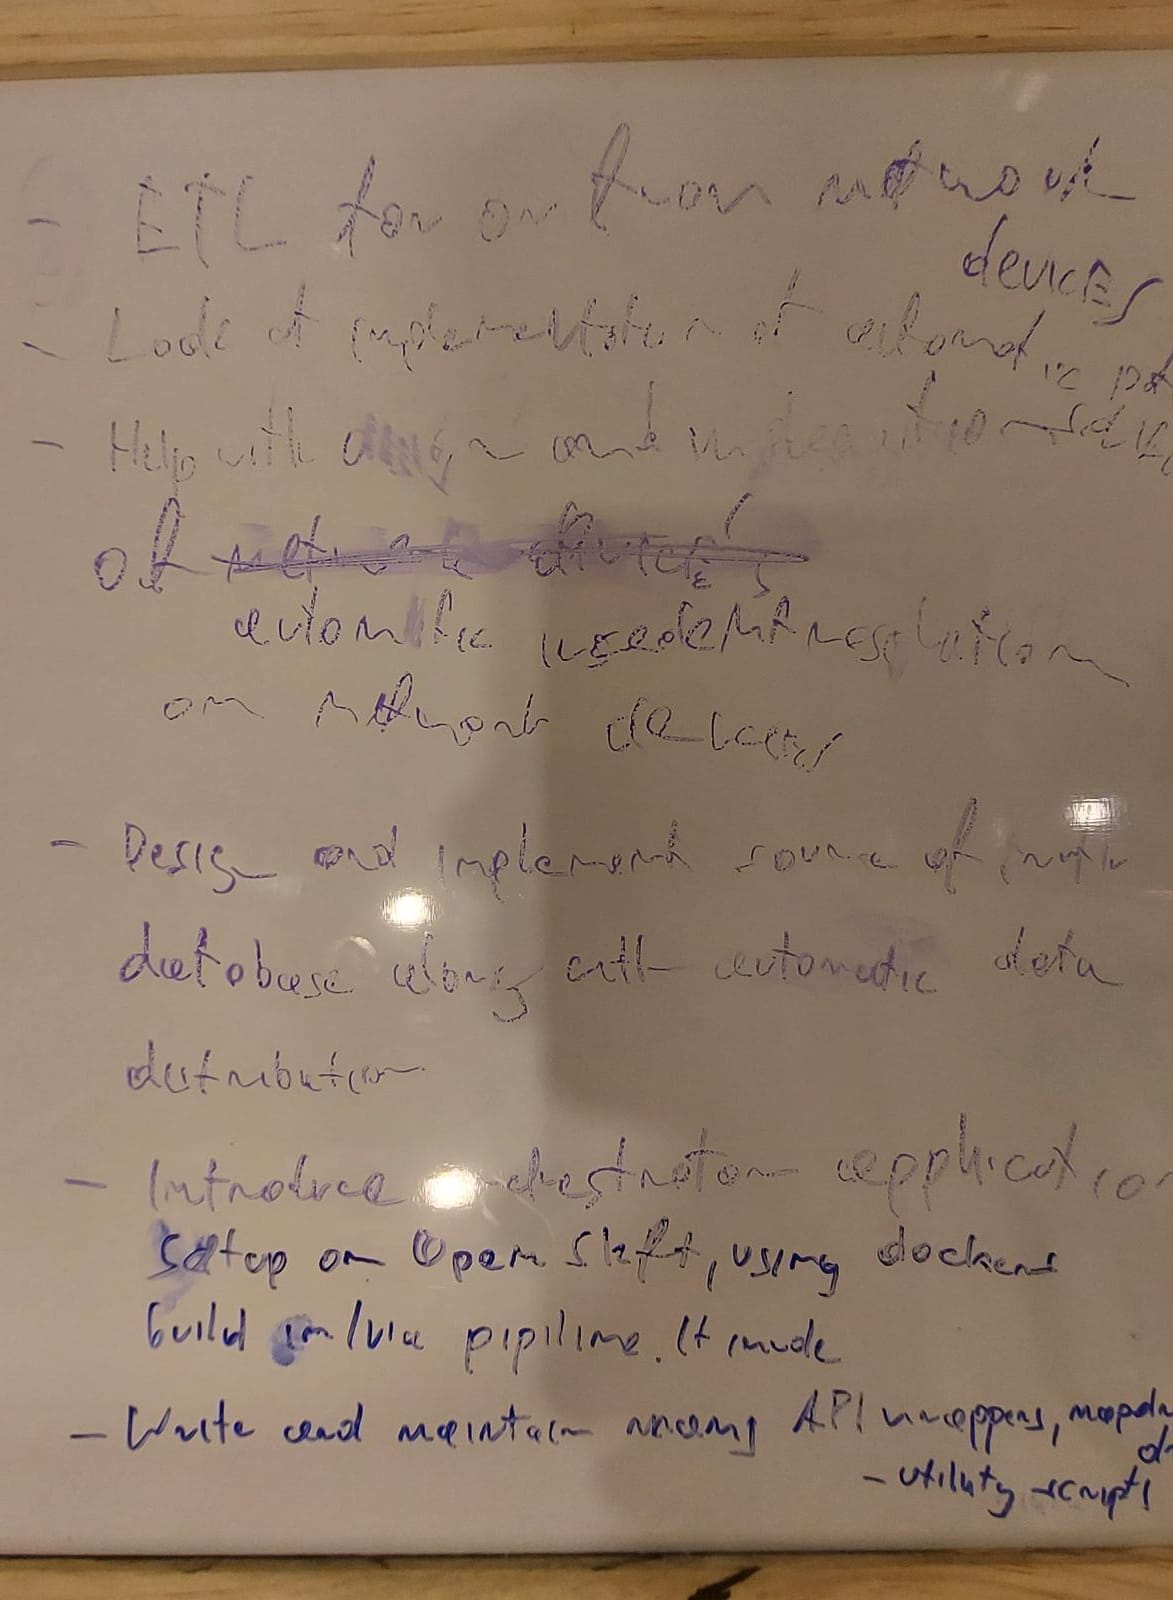 - ETL for or from network
devices
- Look at implementation of automatic
- Help with design and
of network devices
automatic incedent resolution
on network devices
- Design and implement source of truth
database along with automatic data
distribution
- Introduce orchestrator applicatio
Setup on OpenShift, using dockers
build in/via pipiline. It
- Write and maintain many API wrappers,
- utility scripts